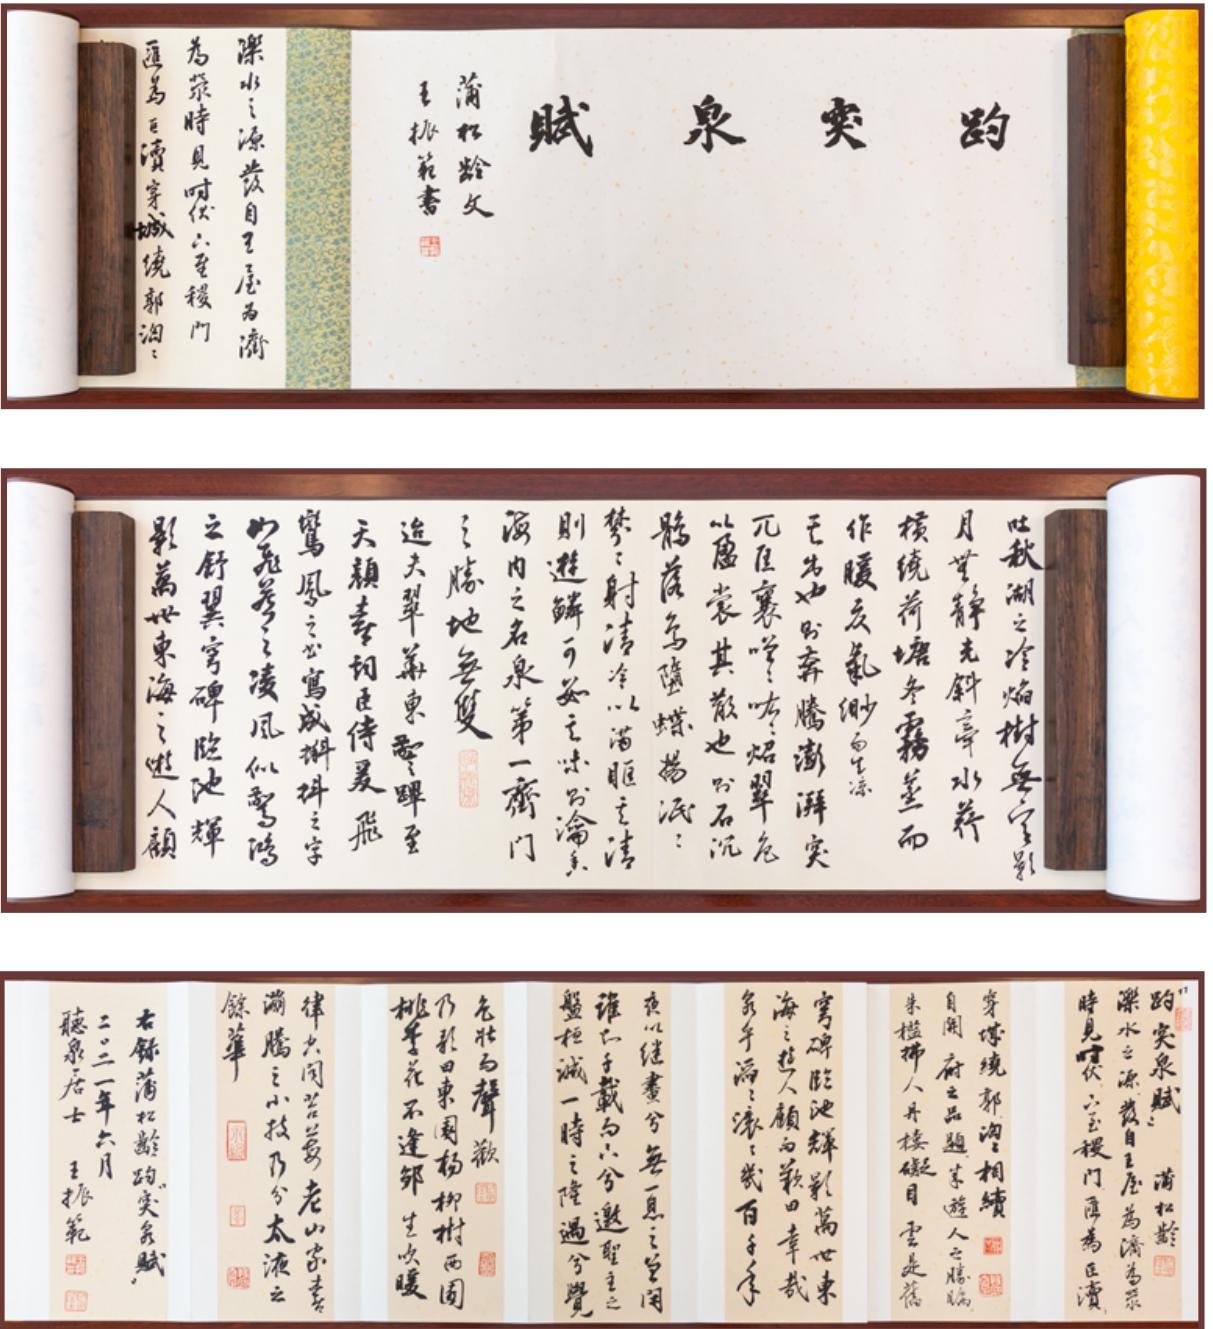 趵突泉賦
蒲松齡文
王振範書
濼水之源發自王屋為濟
為滎時見時伏下至稷門
匯為巨瀆穿城繞郭洶々
吐秋湖之冷焰樹無定影
月無靜光斜牽水荇
橫繞荷塘冬霧蒸而
作暖夏氣緲而生涼
其出也則奔騰澎湃突
兀匡襄噌々吰々炤翠危
以盈裳其散也則石沉
鶻落鳥墮蝶揚泯々
棼々射清冷以滿眶其清
則遊鱗可數其味則瀹香
海内之名泉第一齊門
之勝地無雙
迨夫翠華東駐蹕至
天顏喜詞臣侍爰飛
鸞鳳之書寫成蝌蚪之字
如飛若之凌風似驚鴻
之舒翼穹碑臨池輝
影萬世東海之遊人顧
“趵突泉賦” 蒲松齡
濼水之源發自王屋為濟為滎
時見時伏下至稷門匯為巨瀆
穿城繞郭洶々相續
自開府之品題來遊人之勝矚
朱檻拂人丹樓礙目雲是舊
穹碑臨池輝影萬世東
海之遊人顧而歎曰幸哉
泉乎滔々滾々幾百千年
夜以繼晝兮無一息之暫閒
誰知千載而下兮邀聖主之
盤桓誠一時之隆遇兮覺
色壯而聲歡
乃歌曰東園楊柳樹西園
桃李花不逢鄒生吹暖
律大閒苔蔓老山家喜
淜騰之小技乃分太液之
餘華
右錄蒲松齡“趵突泉賦”
二〇二一年六月
聽泉居士 王振範